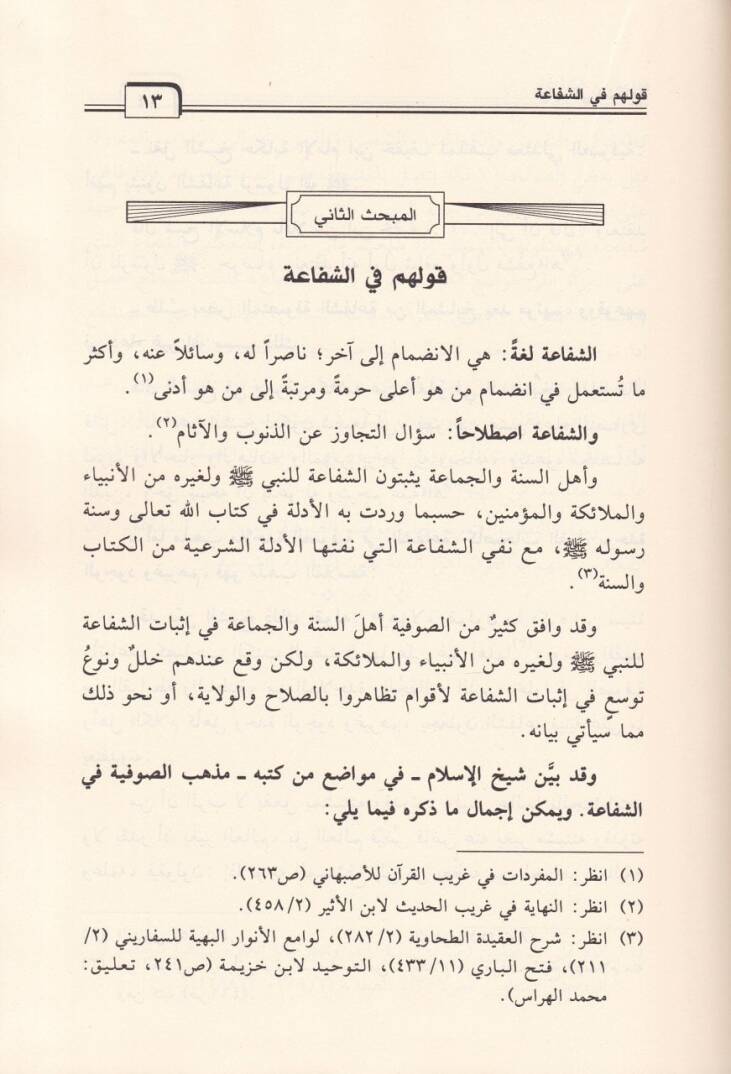 قولهم في الشفاعة
١٣
المبحث الثاني
قولهم في الشفاعة
الشفاعة لغةً: هي الانضمام إلى آخر؛ ناصراً له، وسائلاً عنه، وأكثر
ما تُستعمل في انضمام من هو أعلى حرمةً ومرتبةً إلى من هو أدنى(١).
والشفاعة اصطلاحاً: سؤال التجاوز عن الذنوب والآثام(٢).
وأهل السنة والجماعة يثبتون الشفاعة للنبي ﷺ ولغيره من الأنبياء
والملائكة والمؤمنين، حسبما وردت به الأدلة في كتاب الله تعالى وسنة
رسوله ﷺ، مع نفي الشفاعة التي نفتها الأدلة الشرعية من الكتاب
والسنة(٣).
وقد وافق كثيرٌ من الصوفية أهلَ السنة والجماعة في إثبات الشفاعة
للنبي ﷺ ولغيره من الأنبياء والملائكة، ولكن وقع عندهم خللٌ ونوعُ
توسعٍ في إثبات الشفاعة لأقوام تظاهروا بالصلاح والولاية، أو نحو ذلك
مما سيأتي بيانه.
وقد بيَّن شيخ الإسلام ـ في مواضع من كتبه ـ مذهب الصوفية في
الشفاعة. ويمكن إجمال ما ذكره فيما يلي:
(١) انظر: المفردات في غريب القرآن للأصبهاني (ص٢٦٣).
(٢) انظر: النهاية في غريب الحديث لابن الأثير (٤٥٨/٢).
(٣) انظر: شرح العقيدة الطحاوية (٢٨٢/٢)، لوامع الأنوار البهية للسفاريني (٢/
٢١١)، فتح الباري (٤٣٣/١١)، التوحيد لابن خزيمة (ص٢٤١، تعليق:
محمد الهراس).